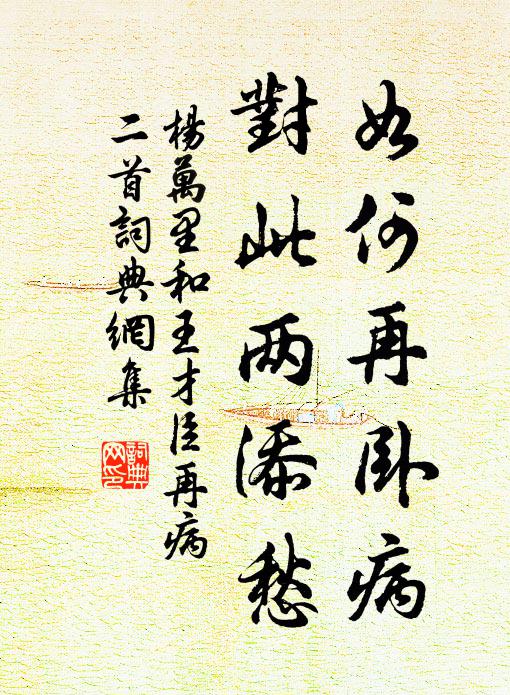 如何再卧病
對此两添愁
楊萬里和王才臣再病
二首詞典網集
詞典
网印